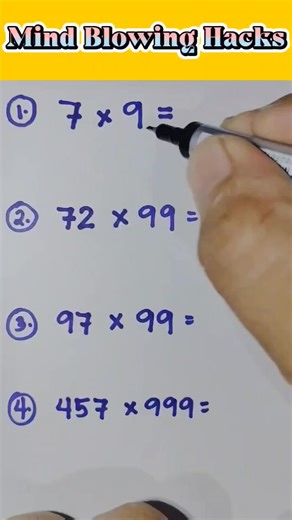 Mind Blowing Hacks
1. 7 × 9 =
2. 72 × 99 =
3. 97 × 99 =
4. 457 × 999 =